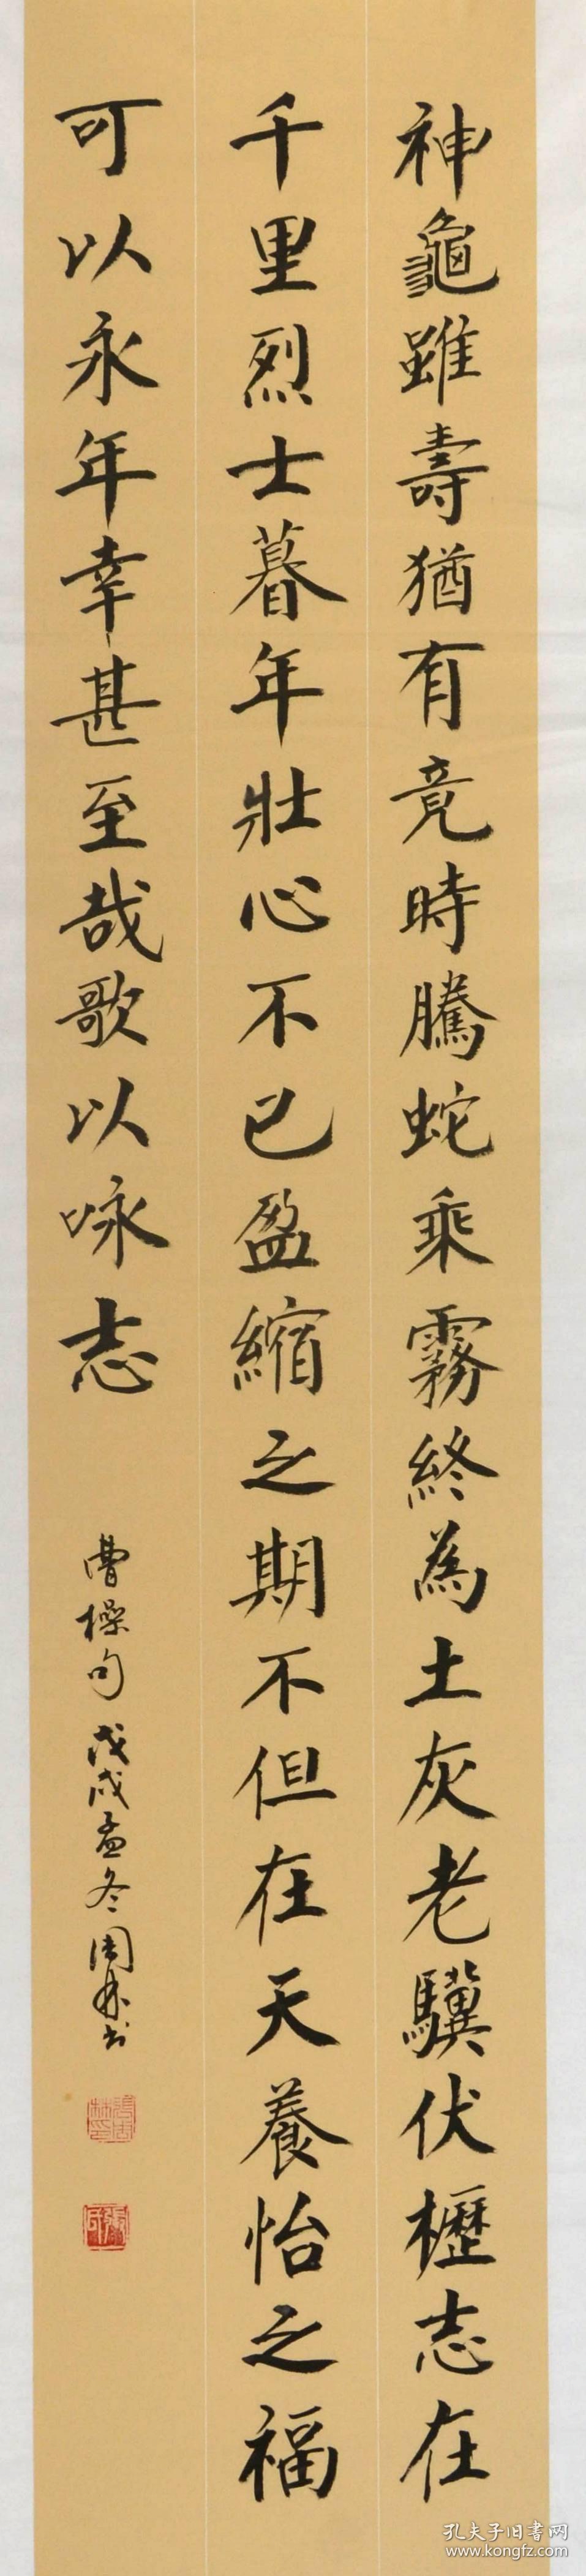 神龜雖壽猶有竟時騰蛇乘霧終為土灰老驥伏櫪志在
千里烈士暮年壯心不已盈縮之期不但在天養怡之福
可以永年幸甚至哉歌以咏志
曹操句戊戌孟冬周林書
孔夫子旧书网
www.kongfz.com